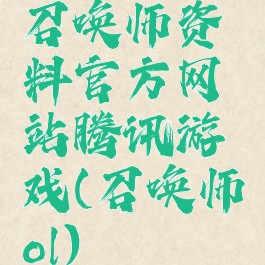 召唤师资
料官方网
站腾讯游
戏(召唤师
ol)